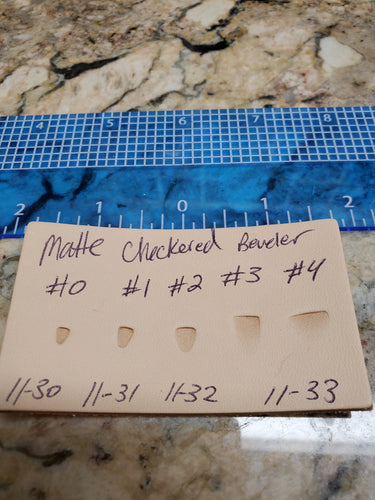 4 5 6 7 8
2 1 0 1 2
Matte Checkered Beveler
#0 #1 #2 #3 #4
11-30 11-31 11-32 11-33